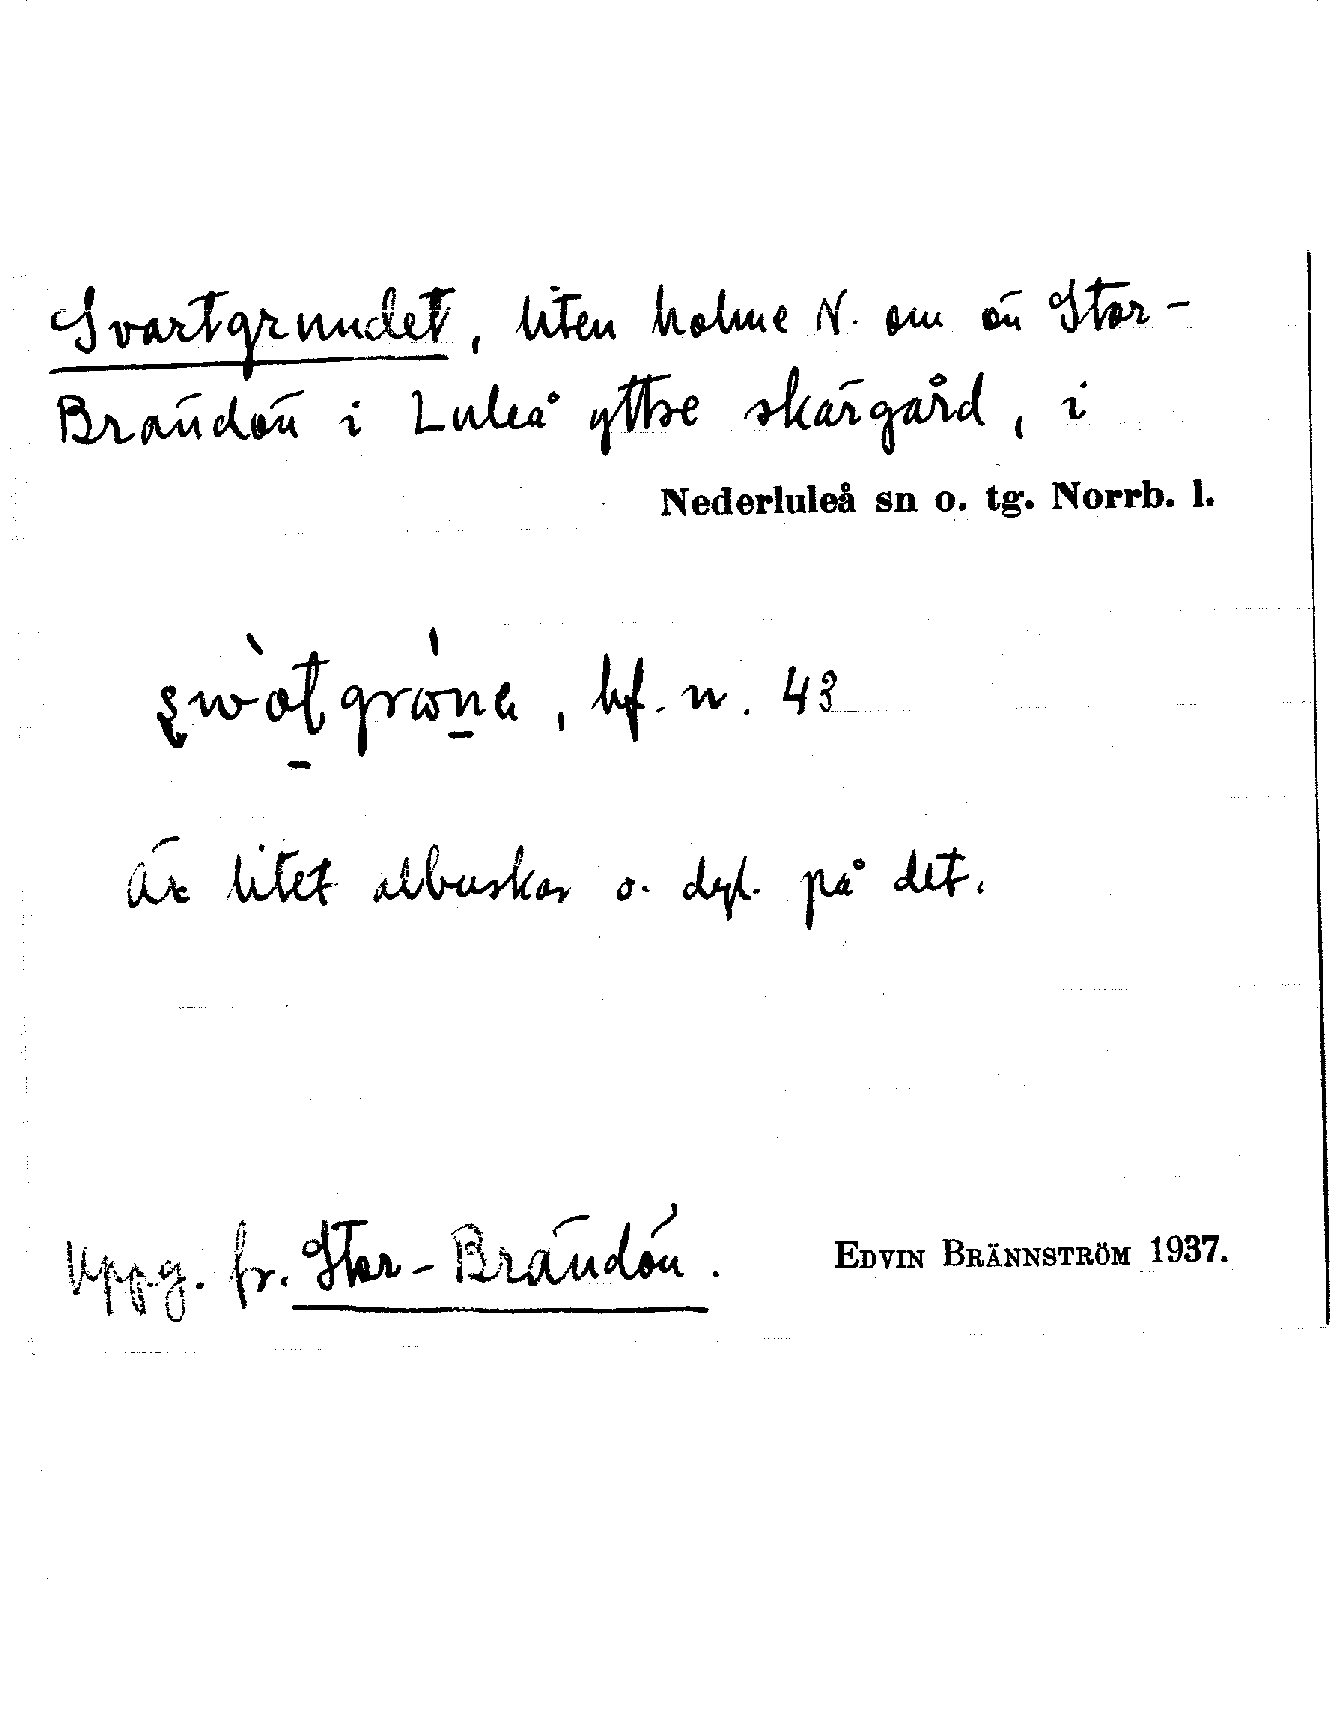 Svartgrundet, liten holme N. om ön Stor-
Brändön i Luleå yttre skärgård, i
Nederluleå sn o. tg. Norrb. l.
bf. n. 43
Är litet albuskar o. dyl. på det.
Uppg. fr. Stor-Brändön.
EDVIN BRÄNNSTRÖM 1937.